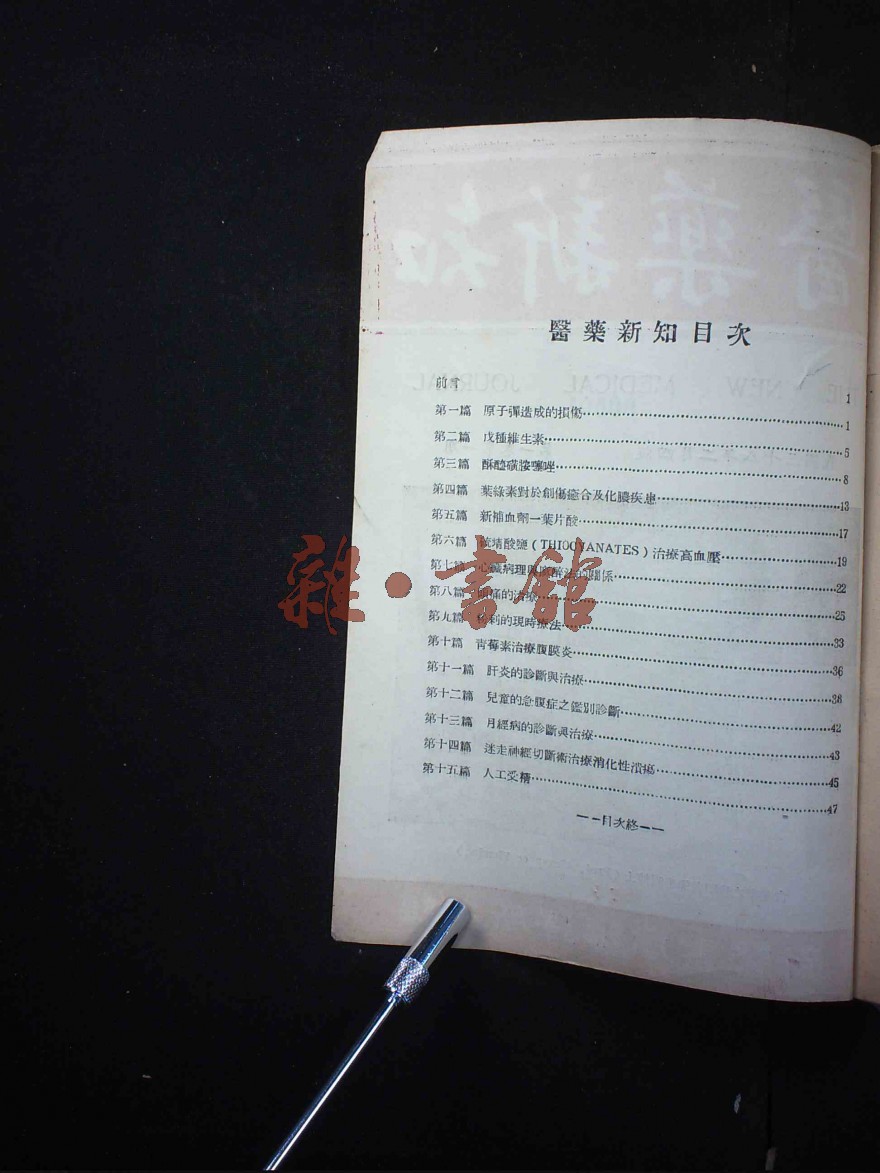 醫藥新知目次
前言 1
第一篇 原子彈造成的損傷 1
第二篇 戊種維生素 5
第三篇 酥醯磺胺噻唑 8
第四篇 葉綠素對於創傷癒合及化膿疾患 13
第五篇 新補血劑一葉片酸 17
第六篇 硫靖酸鹽(THIOCYANATES)治療高血壓 19
第七篇 心臟病理與麻醉法的關係 22
第八篇 頭痛的治療 25
第九篇 的現時療法 33
第十篇 青霉素治療腹膜炎 36
第十一篇 肝炎的診斷與治療 38
第十二篇 兒童的急腹症之鑑別診斷 42
第十三篇 月經病的診斷與治療 43
第十四篇 迷走神經切斷術治療消化性潰瘍 45
第十五篇 人工受精 47
——目次終——
雜·書館